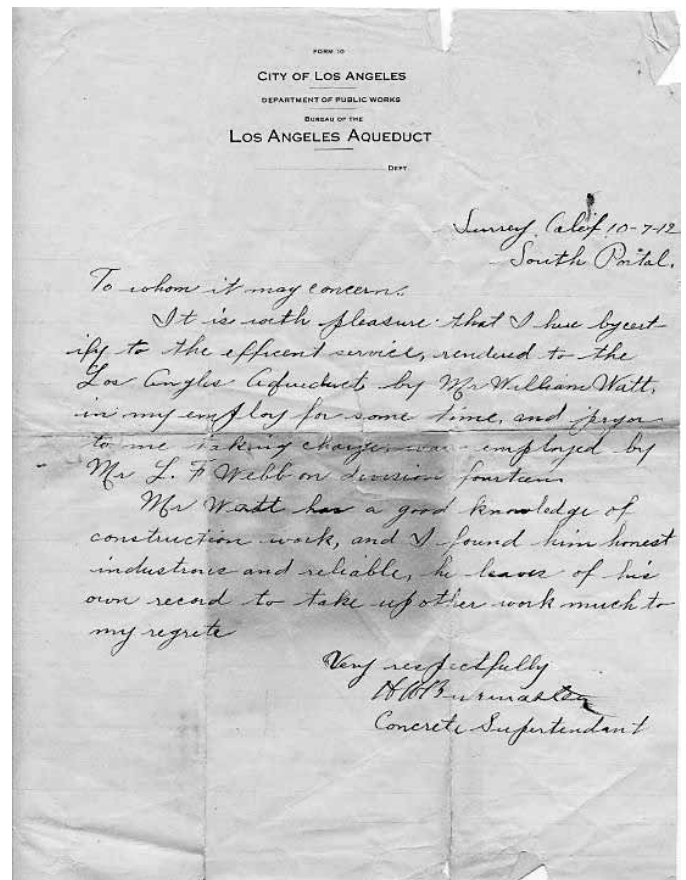 FORM 10
CITY OF LOS ANGELES
DEPARTMENT OF PUBLIC WORKS
BUREAU OF THE
LOS ANGELES AQUEDUCT
DEPT.
Calif 10-7-12
South Portal.
To whom it may concern:
It is with pleasure that I here by cert-
ify to the efficent service, rendered to the
Los Angles Aqueduct by Mr William Watt,
in my employ for some time, and pryor
to me taking charge was employed by
Mr L. F Webb on division fourteen
Mr Watt has a good knowledge of
construction work, and I found him honest
industrous and reliable, he leaves of his
own record to take up other work much to
my regrete
Very respectfully
Concrete Supertendant